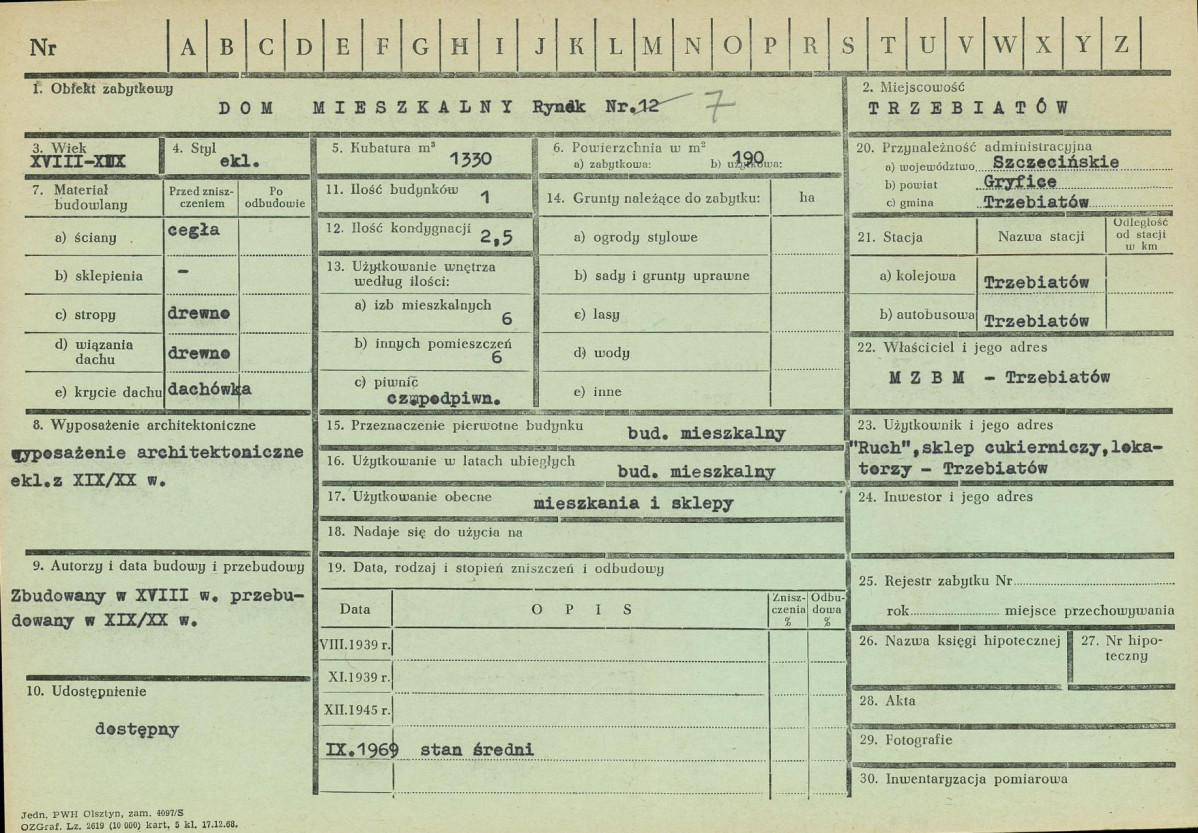 Nr A B C D E F G H I J K L M N O P R S T U V W X Y Z
1. Obiekt zabytkowy
DOM MIESZKALNY Rynek Nr.12 7
2. Miejscowość
TRZEBIATÓW
3. Wiek
XVIII-XIX
4. Styl
ekl.
5. Kubatura m³
1330
6. Powierzchnia w m²
a) zabytkowa: b) użytkowa:
190
7. Materiał budowlany
Przed znisz-
czeniem
Po
odbudowie
a) ściany cegła
b) sklepienia –
c) stropy drewno
d) wiązania
dachu drewno
e) krycie dachu dachówka
8. Wyposażenie architektoniczne
wyposażenie architektoniczne
ekl.z XIX/XX w.
9. Autorzy i data budowy i przebudowy
Zbudowany w XVIII w. przebu-
dowany w XIX/XX w.
10. Udostępnienie
dostępny
11. Ilość budynków 1
12. Ilość kondygnacji 2,5
13. Użytkowanie wnętrza
według ilości:
a) izb mieszkalnych
6
b) innych pomieszczeń
6
c) piwnic
cz.podpiwn.
14. Grunty należące do zabytku: ha
a) ogrody stylowe
b) sady i grunty uprawne
c) lasy
d) wody
e) inne
15. Przeznaczenie pierwotne budynku bud. mieszkalny
16. Użytkowanie w latach ubiegłych bud. mieszkalny
17. Użytkowanie obecne mieszkania i sklepy
18. Nadaje się do użycia na
19. Data, rodzaj i stopień zniszczeń i odbudowy
Data OPIS
Znisz-
czenia
%
Odbu-
dowa
%
VIII.1939 r.
XI.1939 r.
XII.1945 r.
IX.1969 stan średni
20. Przynależność administracyjna
a) województwo Szczecińskie
b) powiat Gryfice
c) gmina Trzebiatów
21. Stacja Nazwa stacji
Odległość
od stacji
w km
a) kolejowa Trzebiatów
b) autobusowa Trzebiatów
22. Właściciel i jego adres
MZBM - Trzebiatów
23. Użytkownik i jego adres
"Ruch",sklep cukierniczy,loka-
torzy - Trzebiatów
24. Inwestor i jego adres
25. Rejestr zabytku Nr
rok miejsce przechowywania
26. Nazwa księgi hipotecznej
27. Nr hipo-
teczny
28. Akta
29. Fotografie
30. Inwentaryzacja pomiarowa
Jedn. PWH Olsztyn, zam. 4097/S
OZGraf. Lz. 2619 (10 000) kart, 5 kl. 17.12.68.